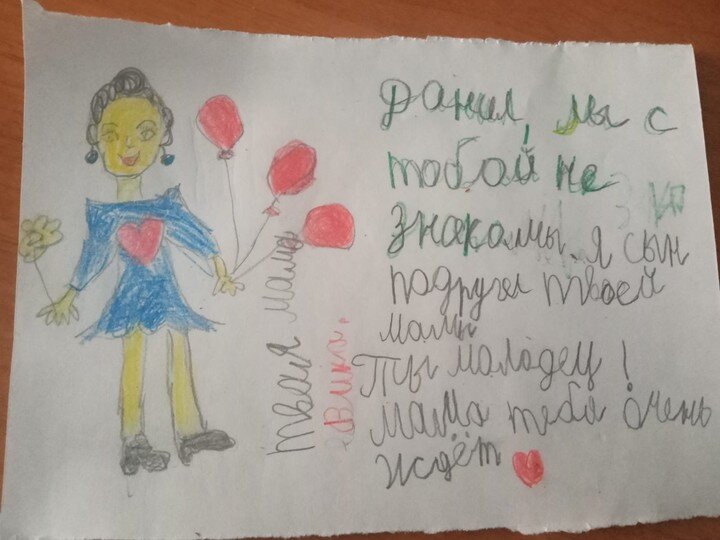 Данил, мы с
тобой не
знакомы. я сын
подруги твоей
мамы
Ты молодец!
мама тебя очень
ждёт
твоя мама
Вика.